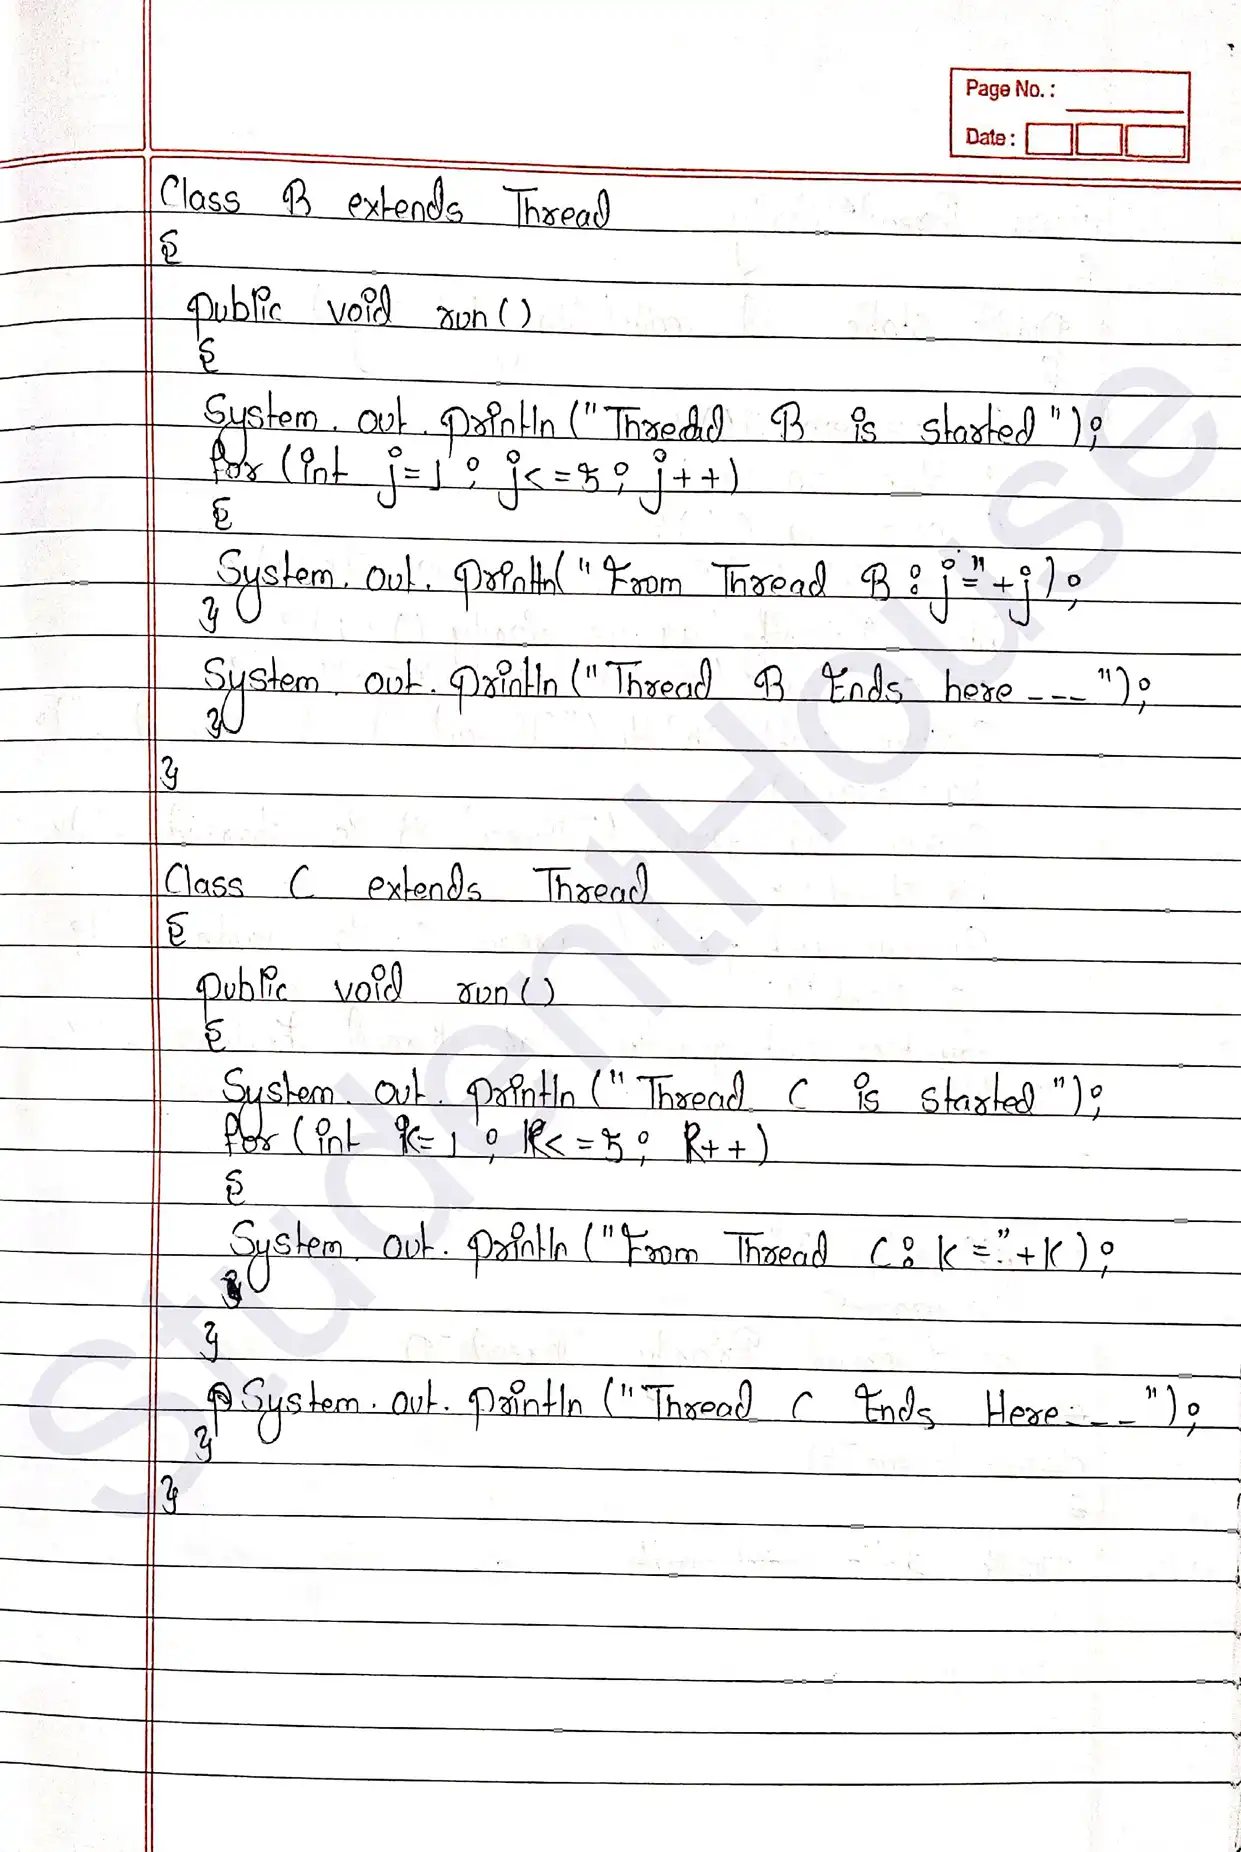 Page No. :
Date :
Class B extends Thread
{
public void run()
{
System.out.println("Thread B is started");
for (int j=1 ; j<=5 ; j++)
{
System.out.println("From Thread B : j="+j);
}
System.out.println("Thread B Ends here ---");
}
}
Class C extends Thread
{
public void run()
{
System.out.println("Thread C is started");
for (int k=1 ; k<=5 ; k++)
{
System.out.println("From Thread C: k="+k);
}
}
System.out.println("Thread C Ends Here---");
}
}
StudentHouse